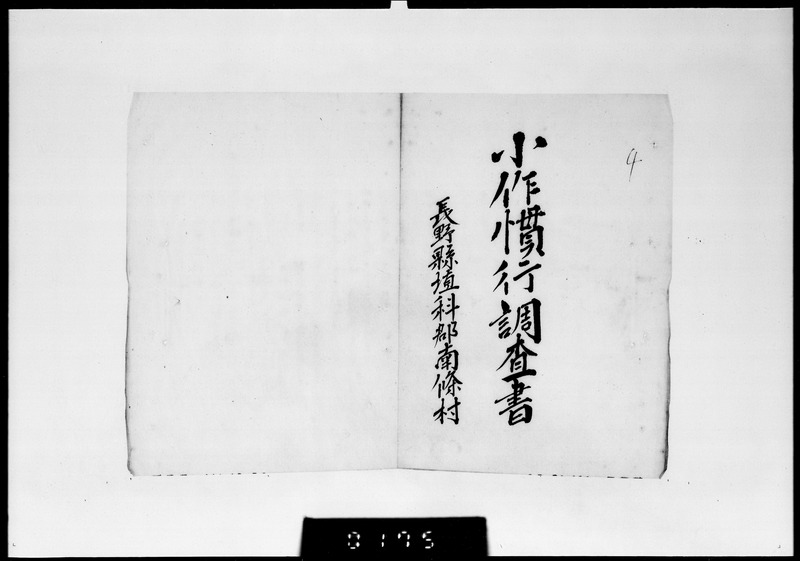 4
小作慣行調査書
長野縣埴科郡南條村
0175